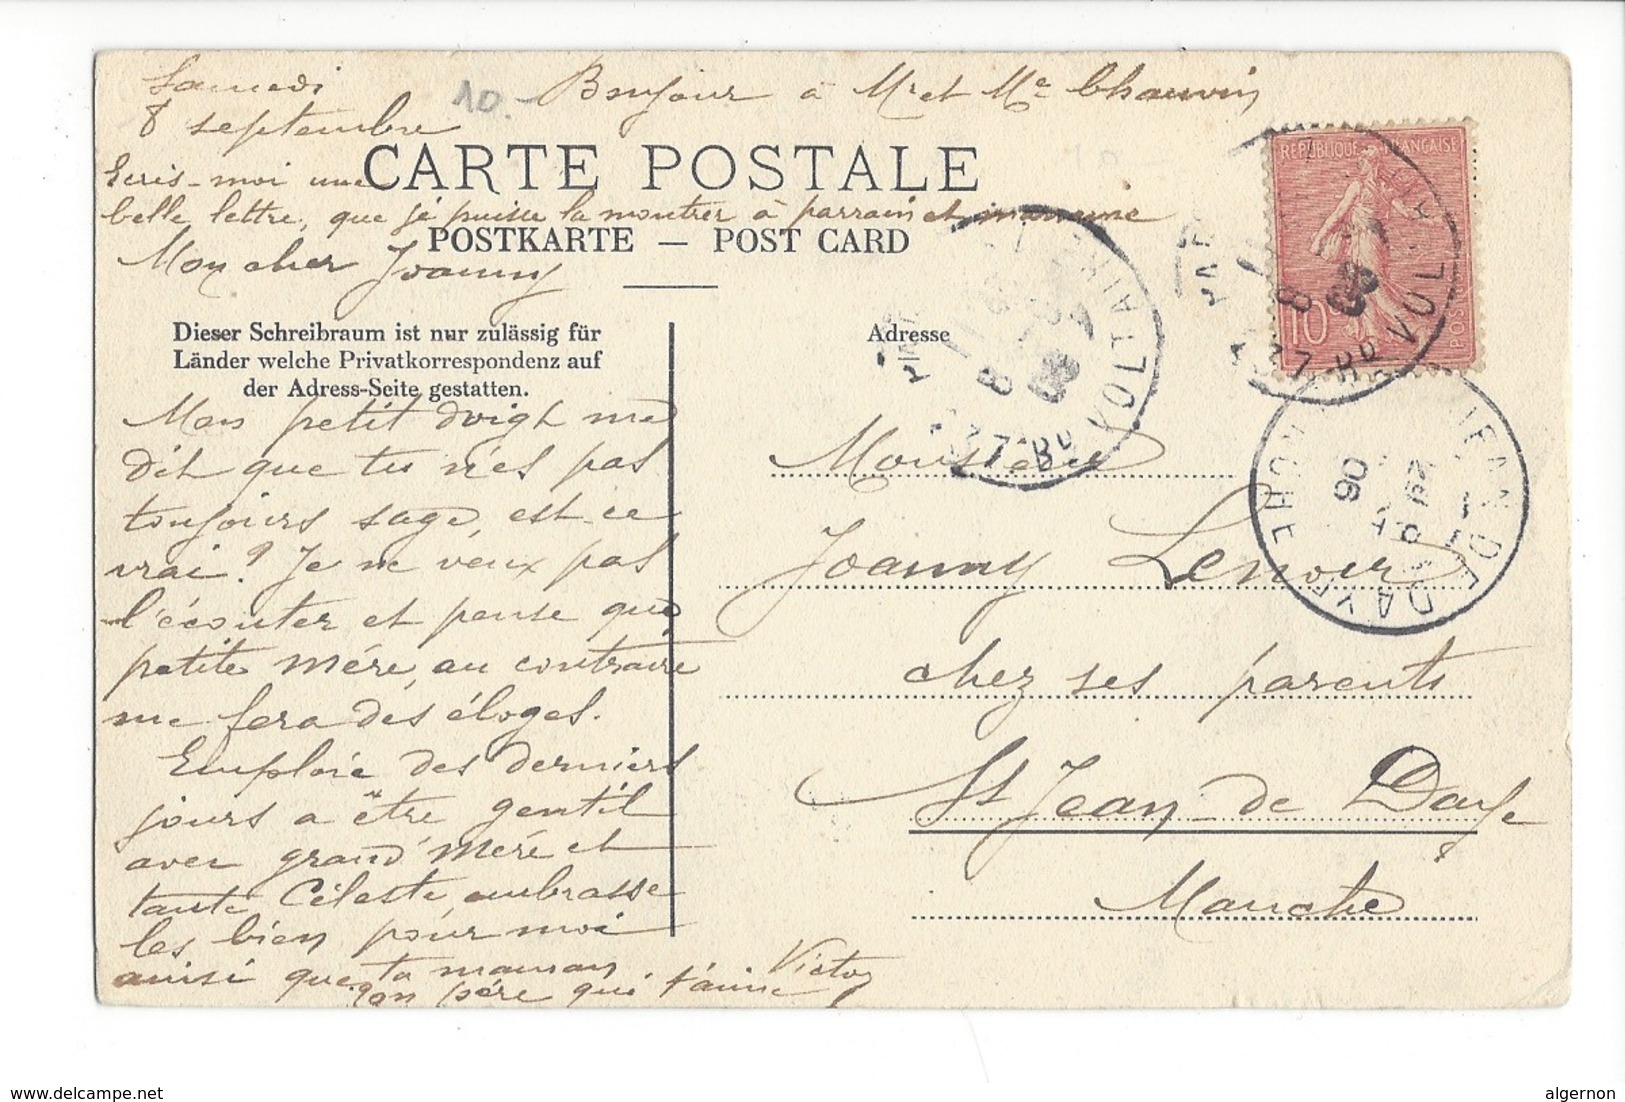 Samedi
8 septembre
10.
Bonjour à Mr et Me Chauvin
Ecris-moi une
belle lettre, que je puisse la montrer à parrain et marraine
CARTE POSTALE
POSTKARTE — POST CARD
Mon cher Joanny
Dieser Schreibraum ist nur zulässig für
Länder welche Privatkorrespondenz auf
der Adress-Seite gestatten.
Adresse
Mon petit doigt me
dit que tu n'es pas
toujours sage, est-ce
vrai? Je ne veux pas
l'écouter et pense que
petite mère, au contraire
me fera des éloges.
Emploie des derniers
jours a être gentil
avec grand'mère et
tante Céleste, embrasse
les bien pour moi
ainsi que ta maman
ton père qui t'aime Victor
Monsieur
Joanny Lenoir
chez ses parents
St Jean-de Daye
Manche
REPUBLIQUE FRANÇAISE
10
POSTES
PARIS
37 Bd VOLTAIRE
PARIS
37 Bd VOLTAIRE
ST JEAN DE DAYE
MANCHE
06
delcampe.net
algernon